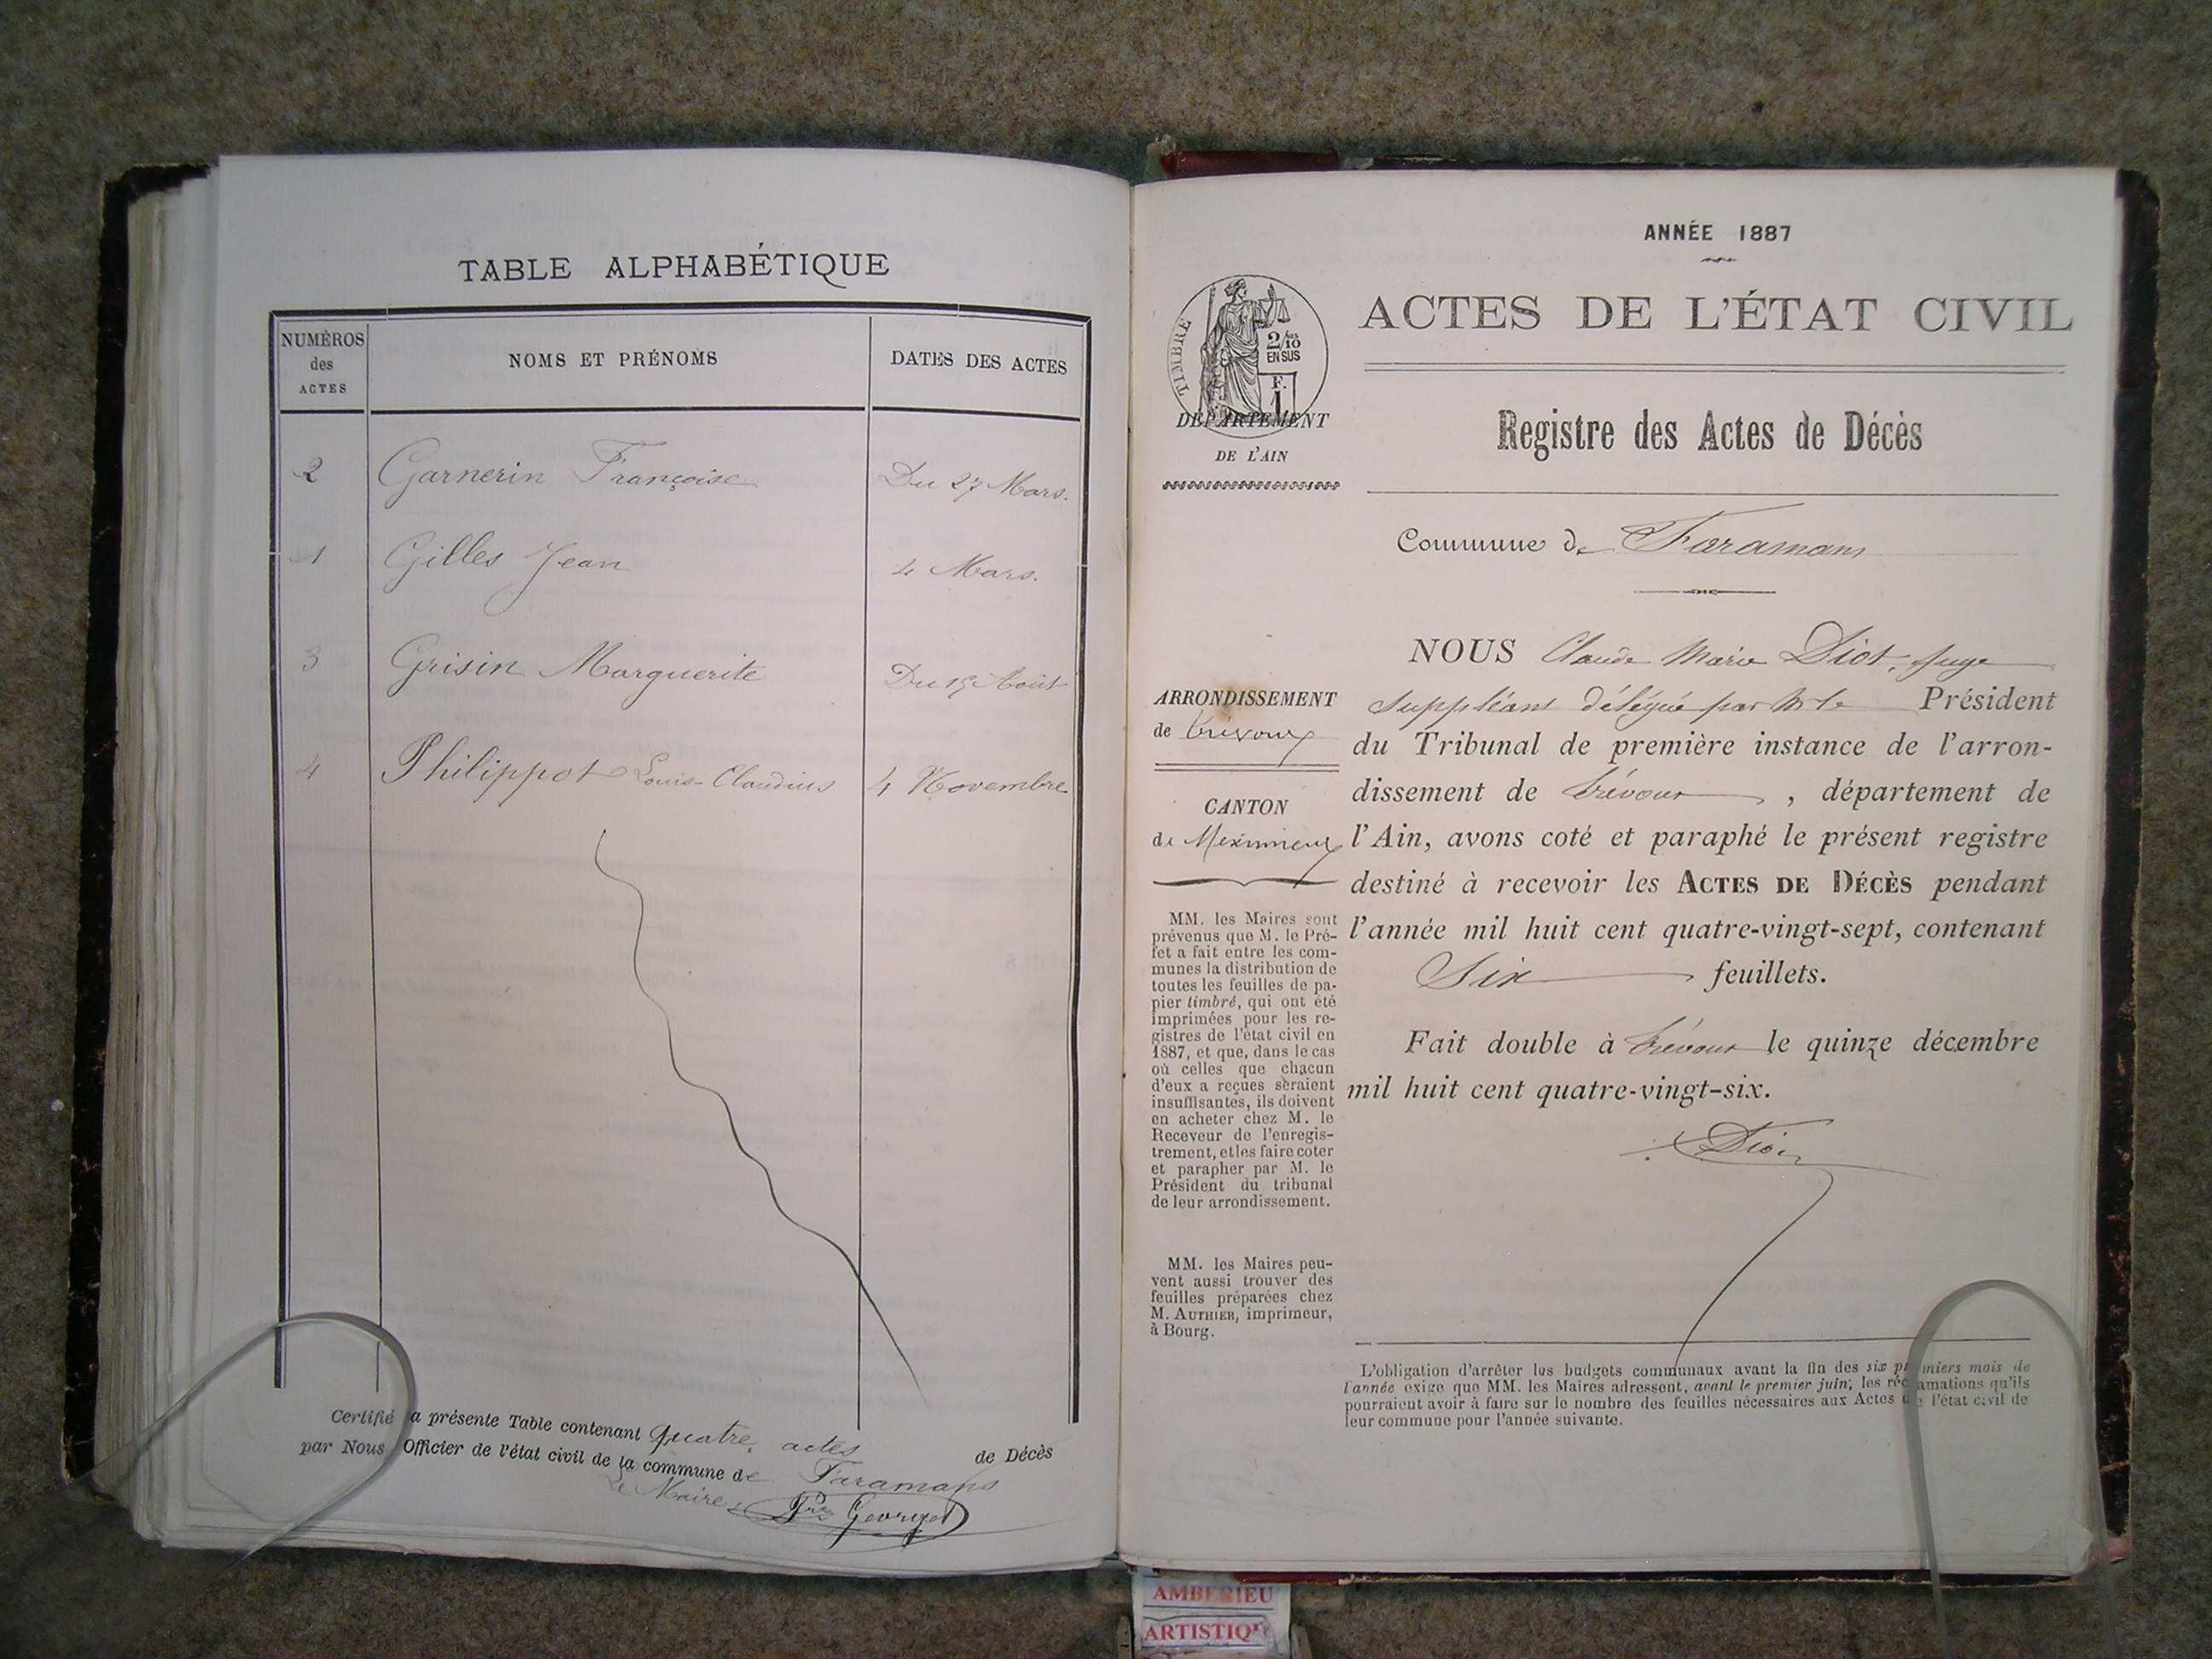 TABLE ALPHABÉTIQUE
NUMÉROS
des
ACTES
NOMS ET PRÉNOMS
DATES DES ACTES
2 Garnerin Françoise Du 27 Mars.
1 Gilles Jean 4 Mars.
3 Grisin Marguerite Du 15 Août
4 Philippot Louis-Claudius 4 Novembre
Certifié la présente Table contenant quatre actes de Décès
par Nous Officier de l'état civil de la commune de Faramans
Le Maire
ANNÉE 1887
TIMBRE
2/10
EN SUS
F.
1
ACTES DE L'ÉTAT CIVIL
DÉPARTEMENT
DE L'AIN
Registre des Actes de Décès
Commune de Faramans
ARRONDISSEMENT
de Trévoux
CANTON
de Meximieux
MM. les Maires sont
prévenus que M. le Pré-
fet a fait entre les com-
munes la distribution de
toutes les feuilles de pa-
pier timbré, qui ont été
imprimées pour les re-
gistres de l'état civil en
1887, et que, dans le cas
où celles que chacun
d'eux a reçues seraient
insuffisantes, ils doivent
en acheter chez M. le
Receveur de l'enregis-
trement, et les faire coter
et parapher par M. le
Président du tribunal
de leur arrondissement.
MM. les Maires peu-
vent aussi trouver des
feuilles préparées chez
M. AUTHIER, imprimeur,
à Bourg.
NOUS Claude Marie Diot, Juge
Suppléant délégué par M. le Président
du Tribunal de première instance de l'arron-
dissement de Trévoux, département de
l'Ain, avons coté et paraphé le présent registre
destiné à recevoir les ACTES DE DÉCÈS pendant
l'année mil huit cent quatre-vingt-sept, contenant
Six feuillets.
Fait double à Trévoux le quinze décembre
mil huit cent quatre-vingt-six.
Diot
L'obligation d'arrêter les budgets communaux avant la fin des six premiers mois de
l'année exige que MM. les Maires adressent, avant le premier juin, les réclamations qu'ils
pourraient avoir à faire sur le nombre des feuilles nécessaires aux Actes de l'état civil de
leur commune pour l'année suivante.
AMBERIEU
ARTISTIQ